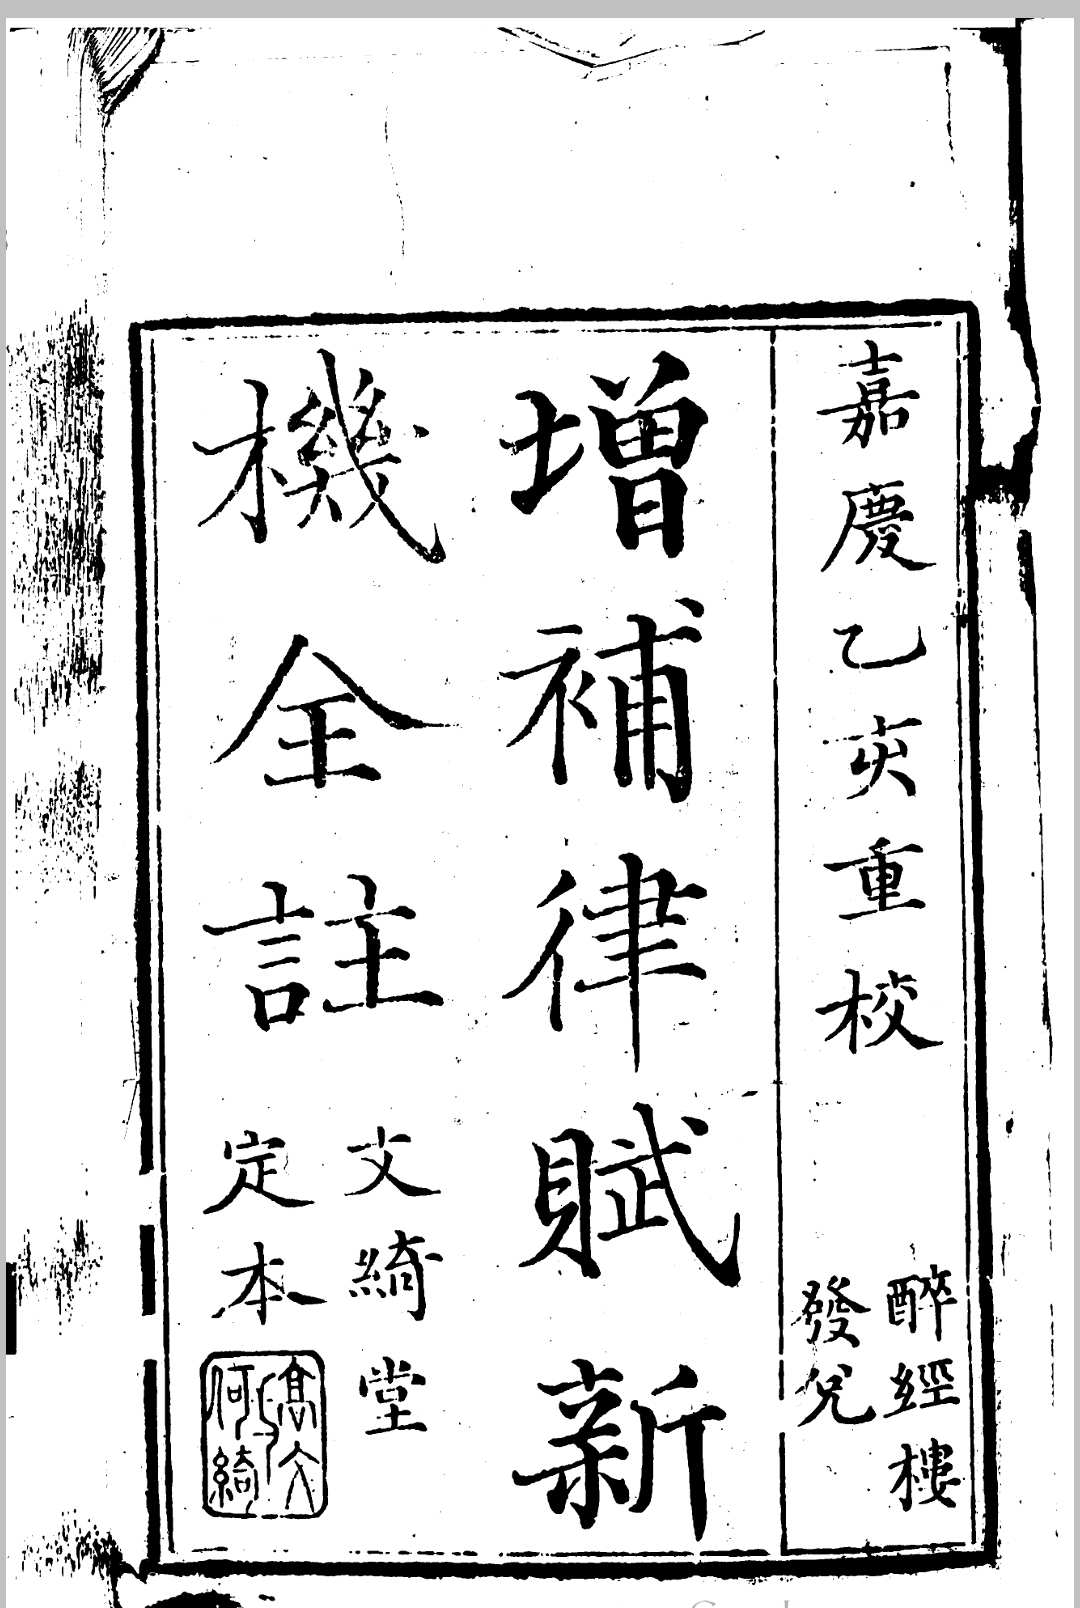 嘉慶乙亥重校
醉經樓
發兌
增補律賦新
機全註
文綺堂
定本